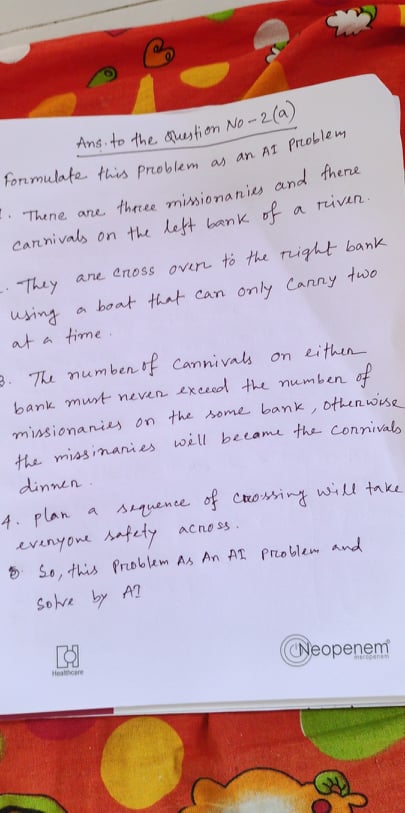 Ans. to the Question No-2(a)
Formulate this Problem as an AI Problem
1. There are three missionaries and there
carnivals on the left bank of a river.
2. They are cross over to the right bank
using a boat that can only carry two
at a time.
3. The number of cannivals on either
bank must never exceed the number of
missionaries on the some bank, otherwise
the missinaries will became the connivals
dinner.
4. Plan a sequence of crossing will take
everyone safety across.
5. So, this Problem As An AI Problem and
Solve by AI
Healthcare
Neopenem
meropenem